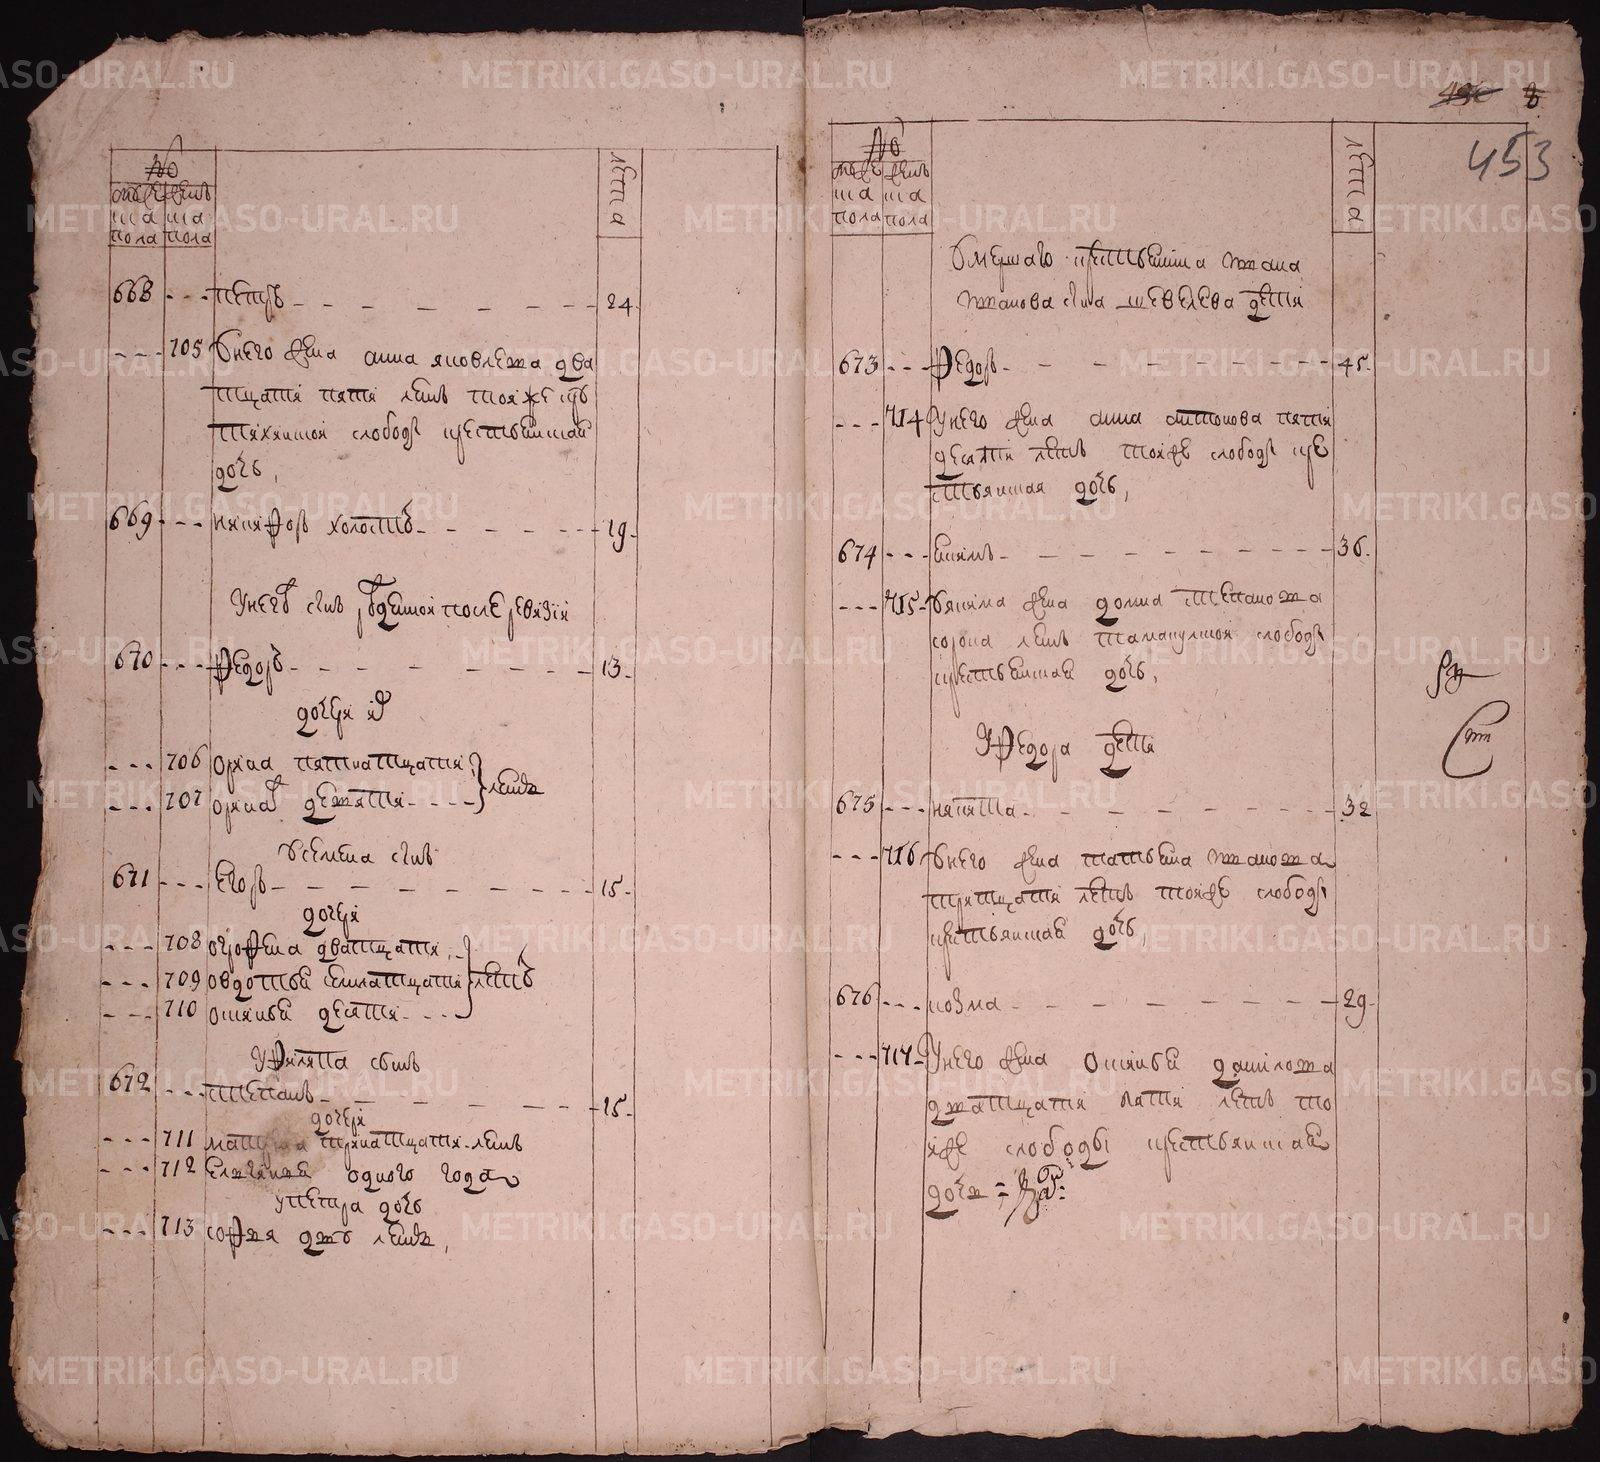 №
мужеска пола
женска пола
лета
668 петръ 24
705 Унего жена анна яковлевна два
тцати пяти летъ тояже цръ
слободы крестьянская
дочь,
669 никифоръ холостъ 19
Унего сынъ рожденной после ревизiи
670 Федоръ 13
дочери
706 орина пятнатцати
707 орина девяти летъ
Усемена сынъ
671 Егоръ 15
дочери
708 офросина дватцати
709 овдотья семнатцати летъ
710 оксинья десяти
Уфилипа сынъ
672 степанъ 15
дочери
711 матрона тринатцати летъ
712 одного года
Упетра дочь
713 софья двъ летъ,
490 8
453
№
мужеска пола
женска пола
лета
Умершаго крестьянина ивана
иванова сына шевелева дети
673 Федоръ 45
714 Унего жена анна антонова пяти
десяти летъ тояже слободы кре
стьянская дочь,
674 екимъ 36
715 Уякима жена домна степановна
сорока летъ слободы
крестьянская дочь,
Уфедора дети
675 никита 32
716 Унего жена татьяна ивановна
тритцати летъ тояже слободы
крестьянская дочь,
676 козма 29
717 Унего жена оксинья даниловна
дватцати пяти летъ то
яже слободы крестьянская
дочь